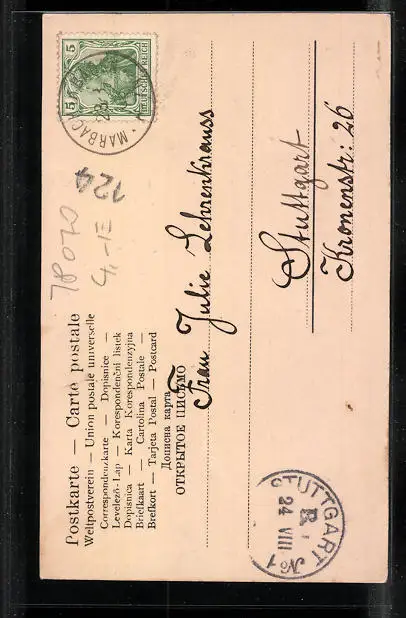 Postkarte — Carte postale
Weltpostverein — Union postale universelle
Correspondenzkarte — Dopisnice —
Levelező-Lap — Korespondenční listek
Dopisnica — Karta Korespondenzyjna
Briefkaart — Cartolina Postale —
Brefkort — Tarjeta Postal — Postcard
Дописна карта
ОТКРЫТОЕ ПИСЬМО
5 DEUTSCHES REICH 5
MARBACH
124
78070
4,-
Frau Julie Lehrenkrauss
Stuttgart
Kronenstr: 26
STUTTGART
24 VIII
No 1